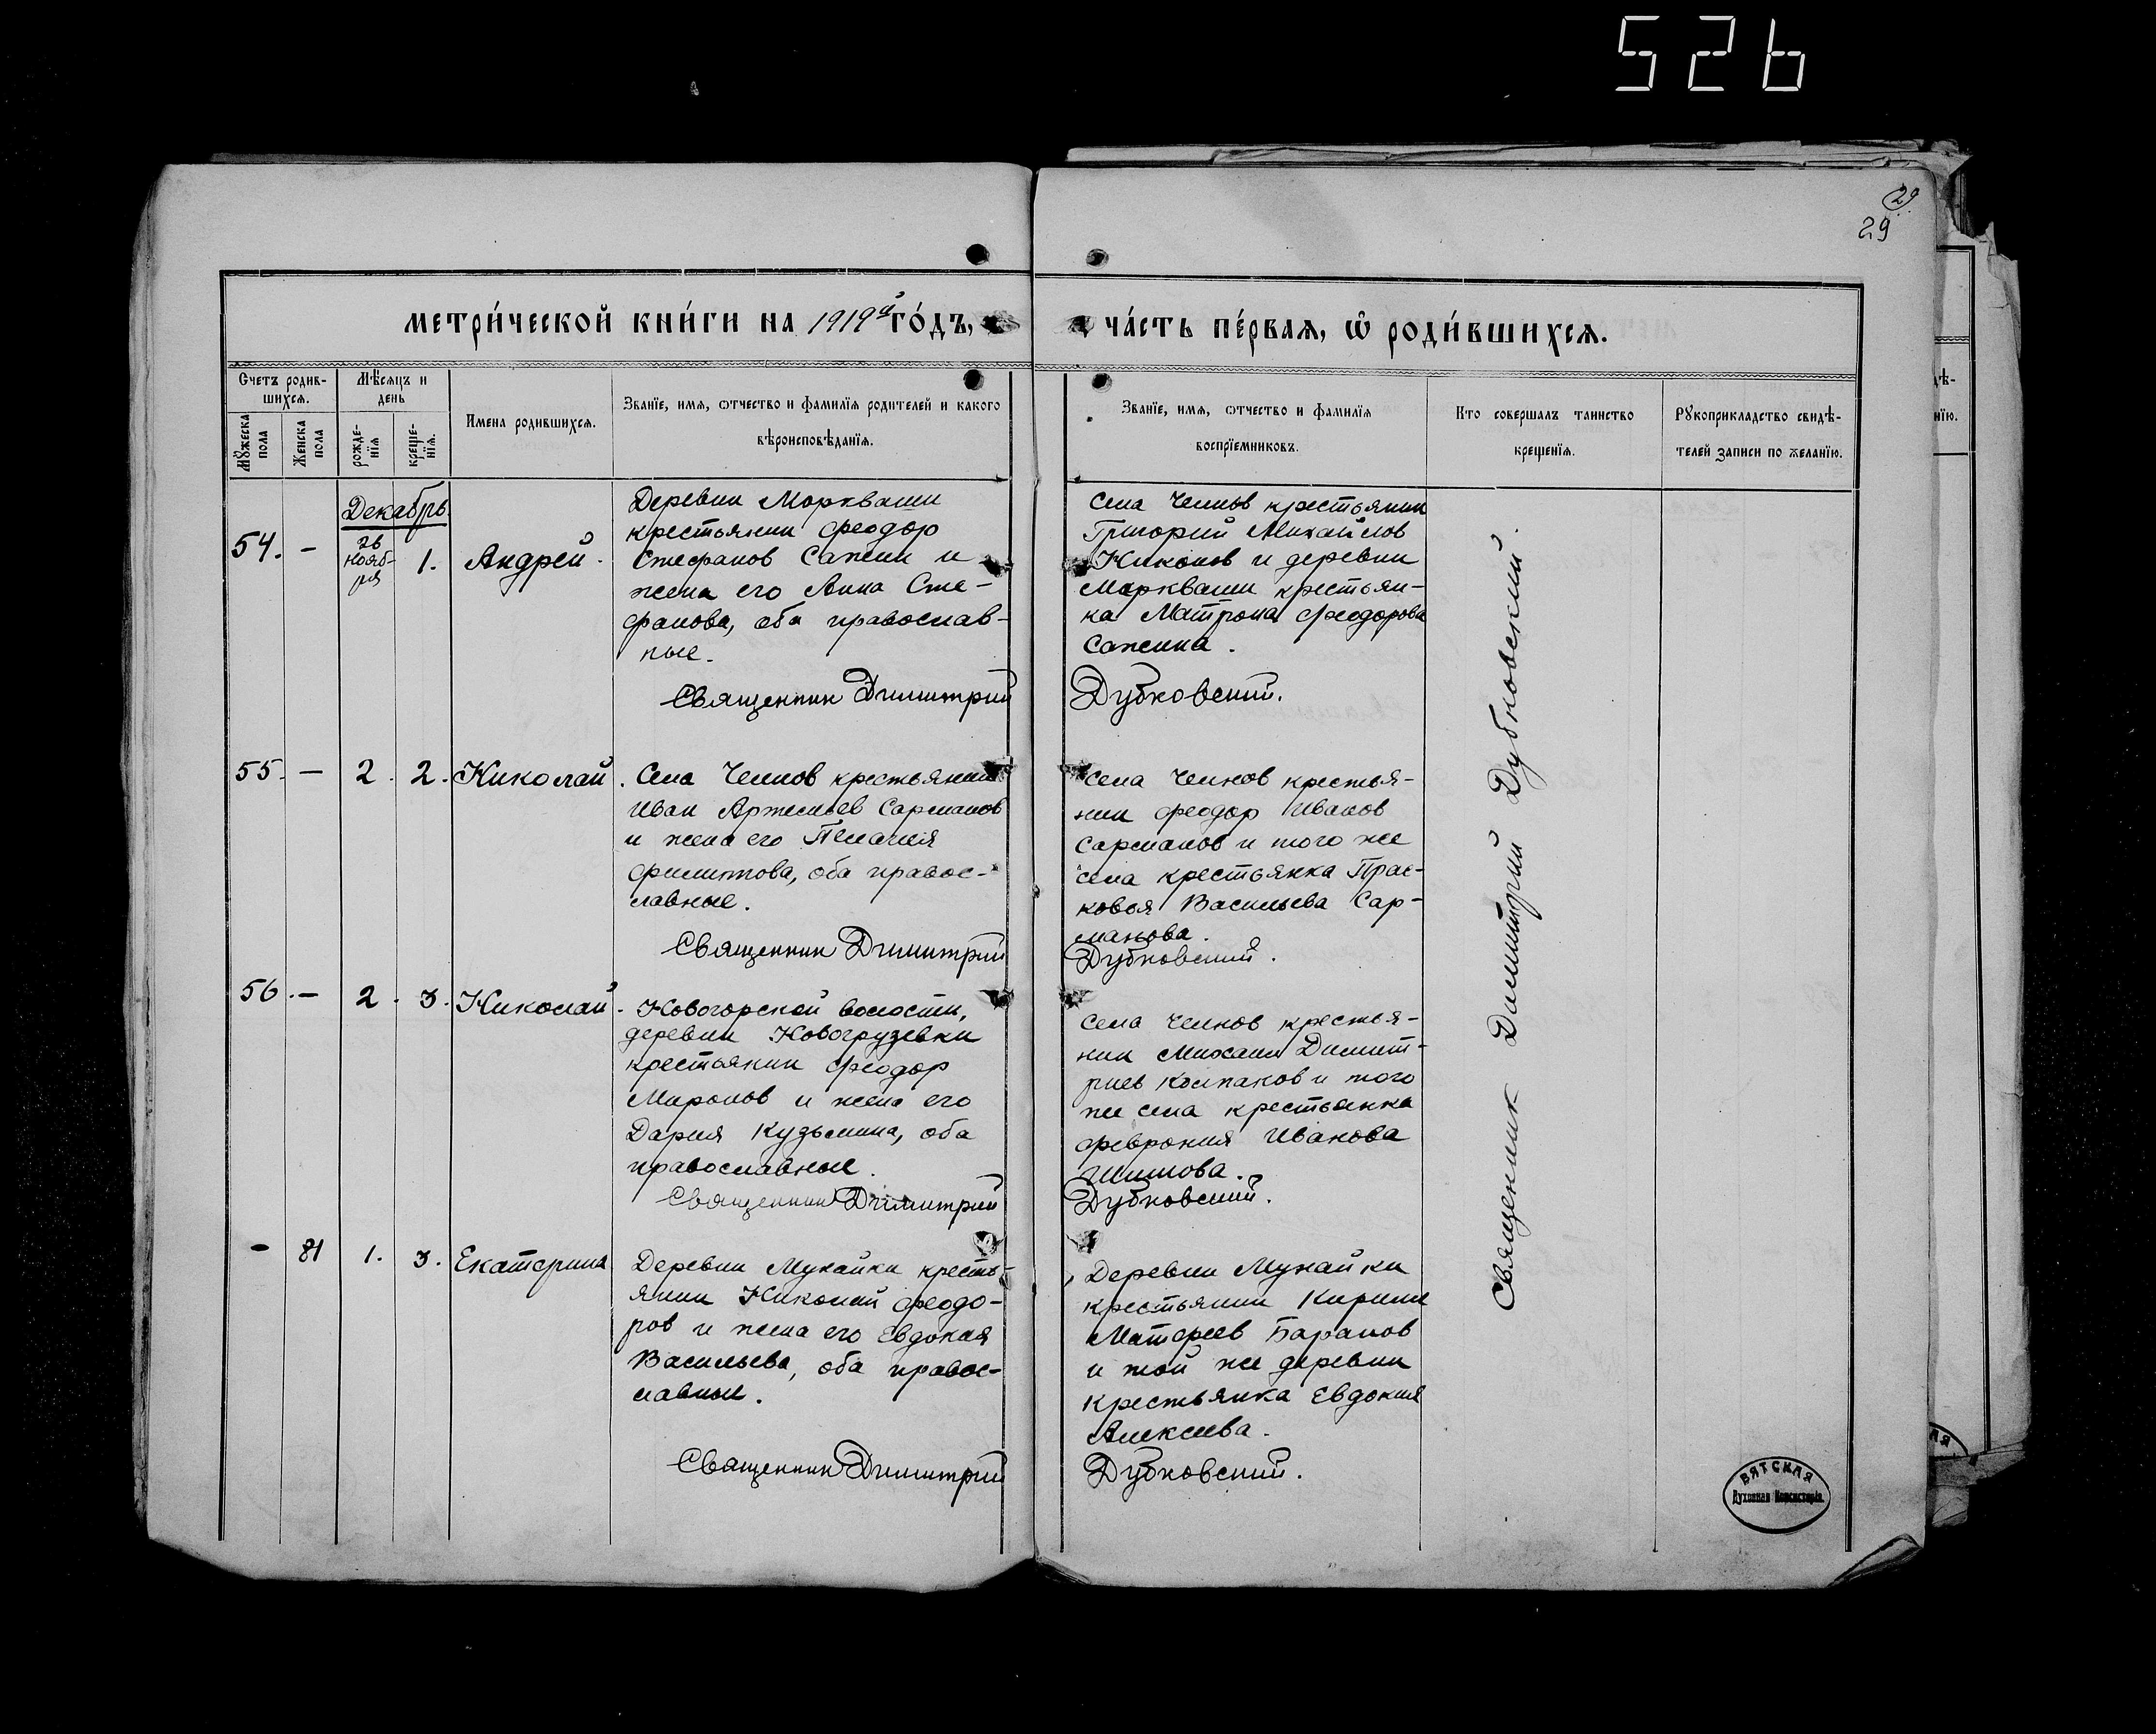 526
29
29
МЕТРИ́ЧЕСКОЙ КНИ́ГИ НА 1919й ГО́ДЪ,
ЧА́СТЬ ПЕ́РВАЯ, Ѡ҆ РОДИ́ВШИХСЯ.
Счетъ родив-
шихся.
Мѣсяцъ и
день
Мꙋжеска
пола
Женска
пола
рожде-
нія
креще-
нія.
Имена родившихся.
Званїе, имя, ѿтчество и фамилїя родителей и какого
вѣроисповѣданїя.
Званїе, имя, ѿтчество и фамилїя
воспрїемниковъ.
Кто совершалъ таинство
крещенїя.
Рꙋкоприкладство свидѣ-
телей записи по желанїю.
Декабрь.
54. -
26
Нояб-
ря
1.
Андрей.
Деревни Моркваши
крестьянин Феодор
Стефанов Сапжин и
жена его Анна Сте-
фанова, оба православ-
ные.
Священник Димитрий
Села Челнов крестьянин
Григорий Михайлов
Никонов и деревни
Моркваши крестьян-
ка Матрона Феодорова
Дубковский.
55. - 2. 2. Николай.
Села Челнов крестьянин
Иван Артемьев Сарманов
и жена его Пелагия
Филиппова, оба правос-
лавные.
Священник Димитрий
Села Челнов крестья-
нин Феодор Иванов
Сарманов и того же
села крестьянка Прас-
ковья Васильева Сар-
манова.
Дубковский.
56. - 2. 3. Николай.
Новогорской волости,
деревни Новогрузевки
крестьянин Феодор
Миронов и жена его
Дария Кузьмина, оба
православные.
Священник Димитрий
Села Челнов крестья-
нин Михаил Димит-
риев Колпаков и того
же села крестьянка
Феврония Иванова
Шишова.
Дубковский.
- 81 1. 3. Екатерина
Деревни Мунайки кресть-
янин Николай Феодо-
ров и жена его Евдокия
Васильева, оба правос-
лавные.
Священник Димитрий
Деревни Мунайки
крестьянин Кирилл
Матфеев Баранов
и той же деревни
крестьянка Евдокия
Алексеева.
Дубковский.
Священник Димитрий Дубковский.
ВЯТСКАЯ
Духовная Консисторія.